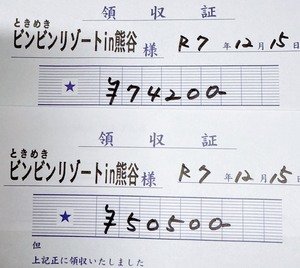 領収証
ときめき
ビンビンリゾートin熊谷 様 R7年12月15日
★ ¥74200-
領収証
ときめき
ビンビンリゾートin熊谷 様 R7年12月15日
★ ¥50500-
但
上記正に領収いたしました